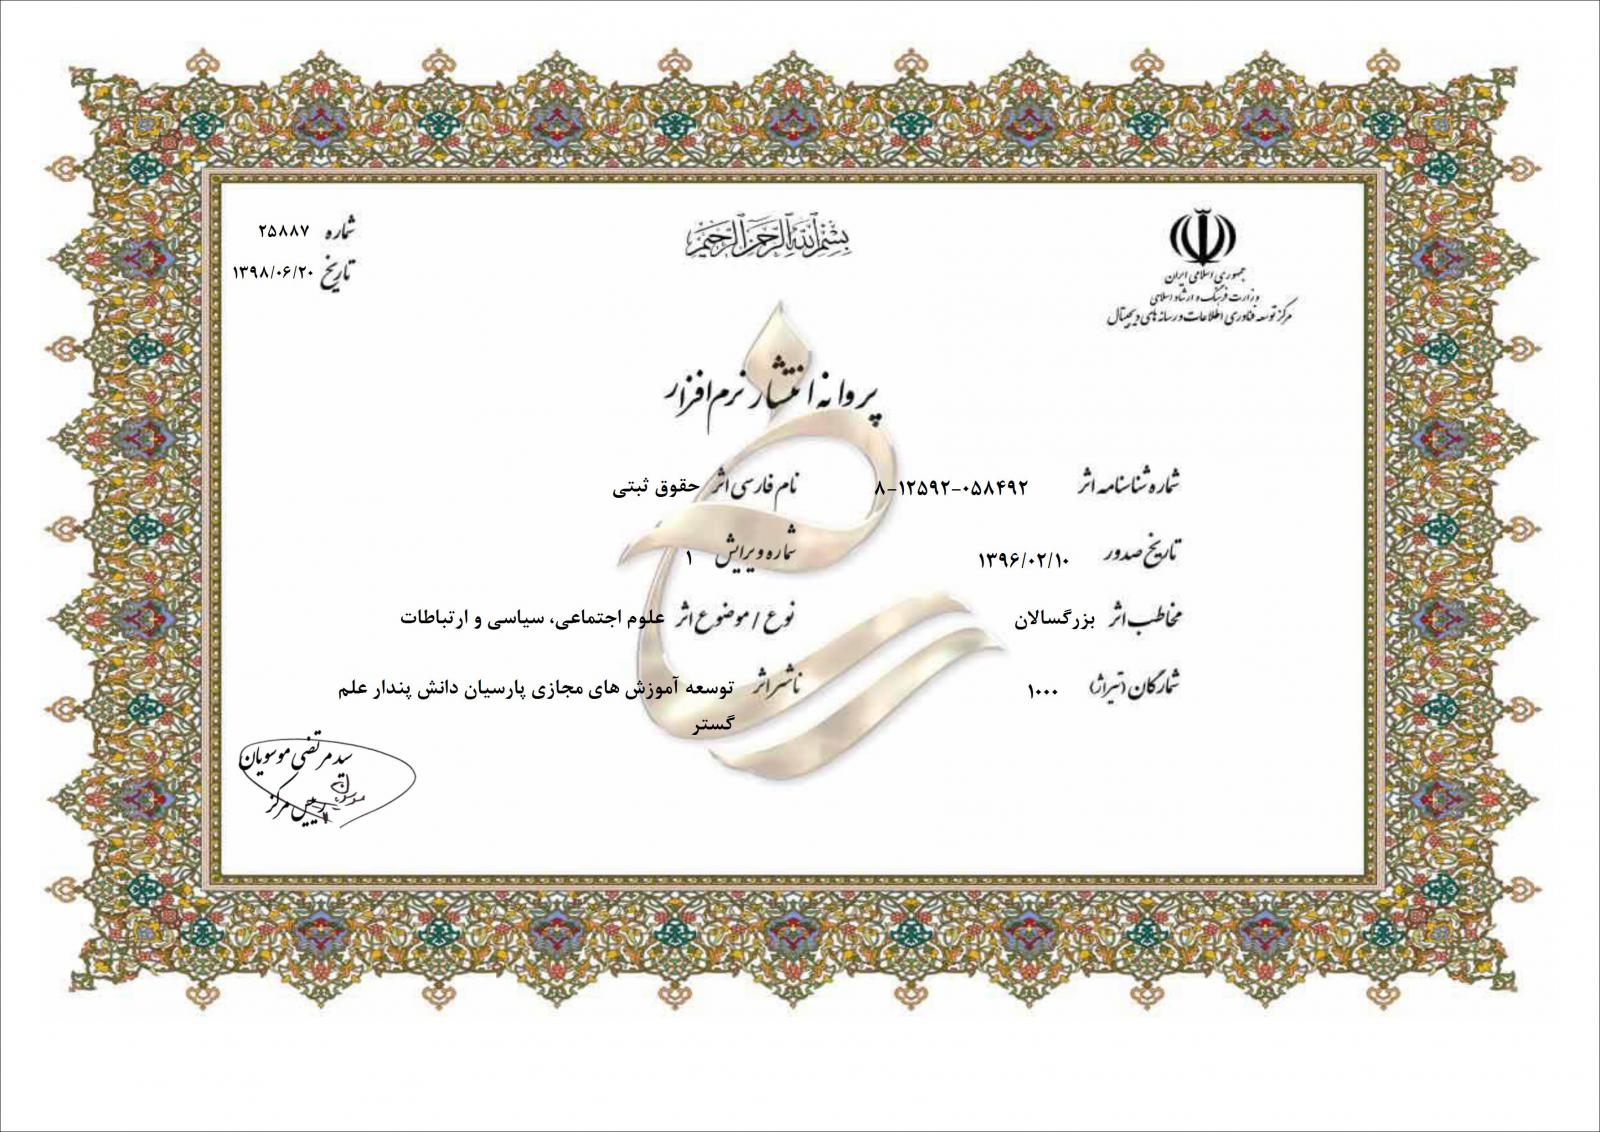 بسم الله الرحمن الرحیم
جمهوری اسلامی ایران
وزارت فرهنگ و ارشاد اسلامی
مرکز توسعه فناوری اطلاعات و رسانه های دیجیتال
شماره ۲۵۸۸۷
تاریخ ۱۳۹۸/۰۶/۲۰
پروانه انتشار نرم افزار
شماره شناسنامه اثر ۸-۱۲۵۹۲-۰۵۸۴۹۲
نام فارسی اثر حقوق ثبتی
تاریخ صدور ۱۳۹۶/۰۲/۱۰
شماره ویرایش ۱
مخاطب اثر بزرگسالان
نوع / موضوع اثر علوم اجتماعی، سیاسی و ارتباطات
شمارگان (تیراژ) ۱۰۰۰
ناشر اثر توسعه آموزش های مجازی پارسیان دانش پندار علم
گستر
سید مرتضی موسویان
رییس مرکز